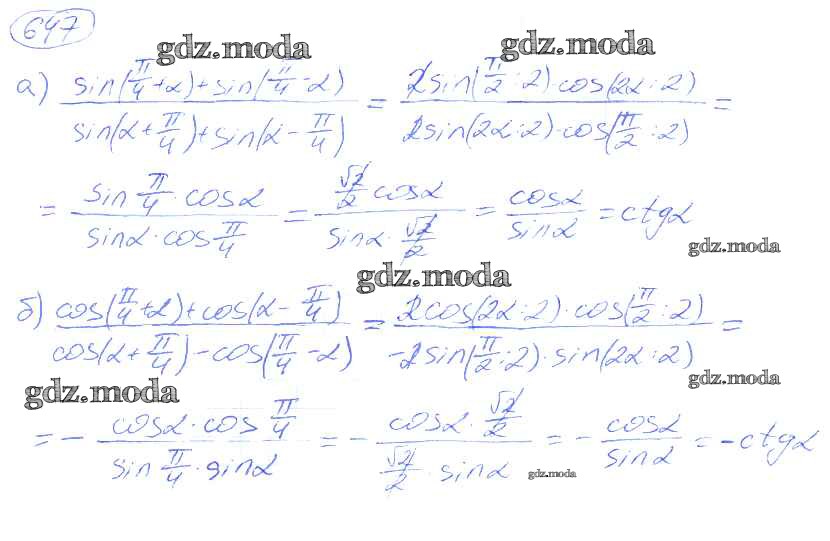 647
gdz.moda gdz.moda
а) sin(π/4 + α) + sin(π/4 - α) / sin(α + π/4) + sin(α - π/4) = 2sin(π/2 : 2) · cos(2α : 2) / 2sin(2α : 2) · cos(π/2 : 2) =
= sin π/4 · cosα / sinα · cos π/4 = √2/2 cosα / sinα · √2/2 = cosα / sinα = ctgα
gdz.moda
gdz.moda
б) cos(π/4 + α) + cos(α - π/4) / cos(α + π/4) - cos(π/4 - α) = 2cos(2α : 2) · cos(π/2 : 2) / -2sin(π/2 : 2) · sin(2α : 2) =
gdz.moda
gdz.moda
= - cosα · cos π/4 / sin π/4 · sinα = - cosα · √2/2 / √2/2 · sinα = - cosα / sinα = -ctgα
gdz.moda